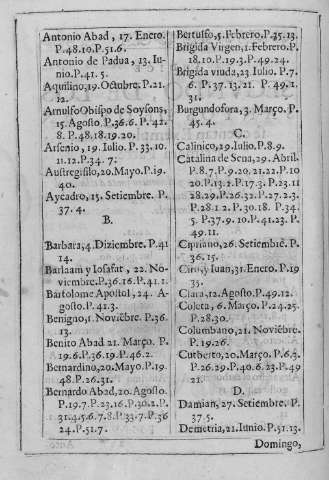 Antonio Abad, 17. Enero.
P.48.10.P.51.6.
Antonio de Padua, 13. Iu-
nio.P.41. 5.
Aquilino, 19. Octubre. P.21.
12.
Arnulfo Obispo de Soysons,
15. Agosto. P.36.6. P.42.
8. P.48.18.19.20.
Arsenio, 19. Iulio. P.33.10.
11.12.P.34. 7.
Austregisilo, 20. Mayo. P.19.
40.
Aycadro, 15. Setiembre. P.
37. 4.
B.
Barbara, 4. Diziembre. P.41
14.
Barlaam y Iosafat, 22. No-
viembre. P.36.16.P.41.1.
Bartolome Apostol, 24. A-
gosto. P.41.3.
Benigno, 1. Noviẽbre. P.36.
13.
Benito Abad 21. Março. P.
19.6.P.36.19. P.46.2.
Bernardino, 20. Mayo. P.19.
48. P.26.31.
Bernardo Abad, 20. Agosto.
P.19.7.P.23.16.P.30.2.P.
31.4.5.6.7.8.P.33.7.P.36
24.P.51.7.
Bertulfo, 5. Febrero. P.25.13.
Brigida Virgen, 1. Febrero. P.
18.10.P.19.3.P.49.24.
Brigida viuda, 23. Iulio. P.7.
6. P.37.13.21. P.49.1.
31.
Burgundofora, 3. Março. P.
45. 4.
C.
Calinico, 29. Iulio. P.8.9.
Catalina de Sena, 29. Abril.
P.8.7.P.9.20.21.22.P.10
20.P.13.2.P.17.3. P.23.11
28.29.P.26.32.P.27.2.3.
P.28.1.2. P.30.18. P.34.
5. P.37.9.10.P.41.23. P.
49.11.
Cipriano, 26. Setiembre. P.
36.15.
Ciro, y Iuan, 31. Enero. P.19
35.
Clara, 12. Agosto. P.49.12.
Coleta, 6. Março. P.24.25.
P.28.30.
Columbano, 21. Noviẽbre.
P.19.26.
Cutberto, 20. Março. P.6.3.
P.26.29.P.40.6.23. P.49
21.
D.
Damian, 27. Setiembre. P.
37.5.
Demetria, 21. Iunio. P.51.13.
Domingo,